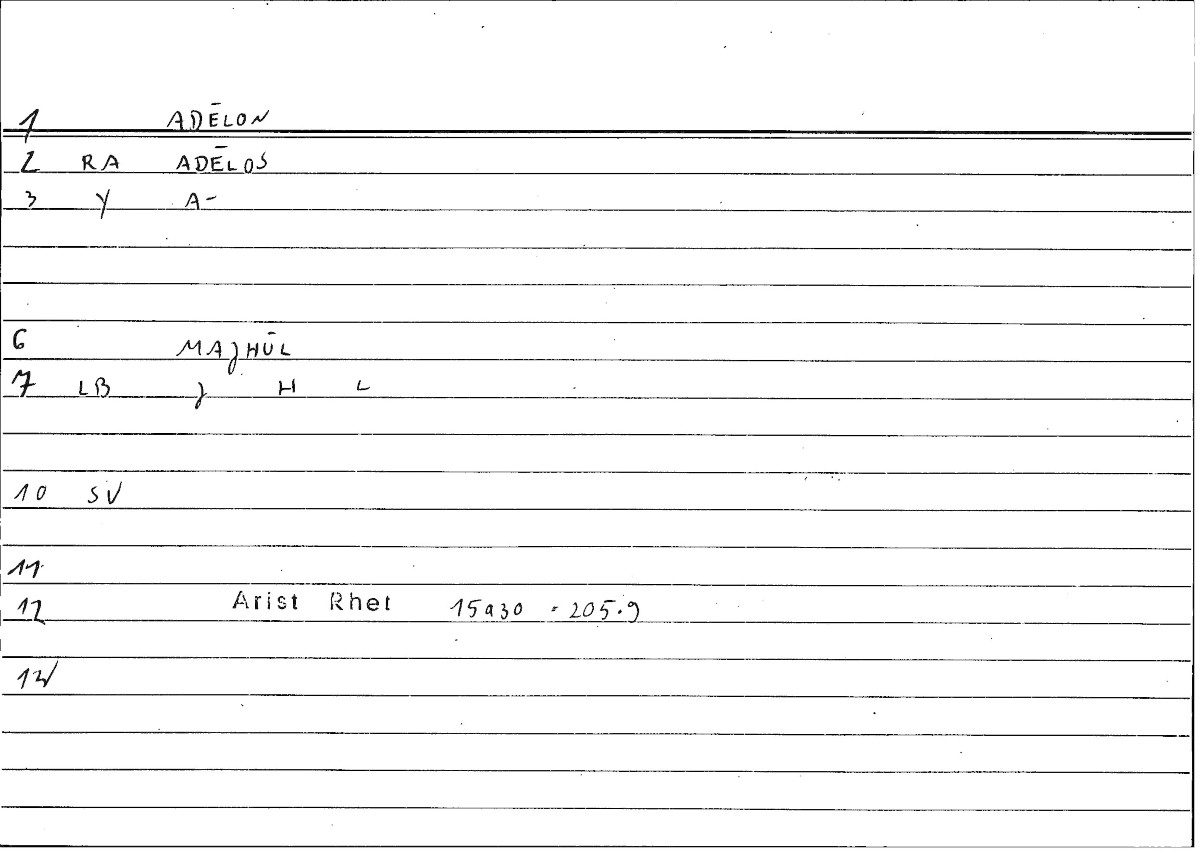 1 ADĒLON
2 RA ADĒLOS
3 Y A-
6 MAJHŪL
7 LB J H L
10 SV
11
12 Arist Rhet 15a30 = 205.9